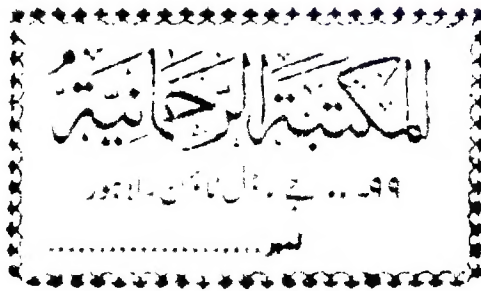 المكتبة الرحمانية
۹۹ جے ماڈل ٹاؤن لاہور
نمبر ........................